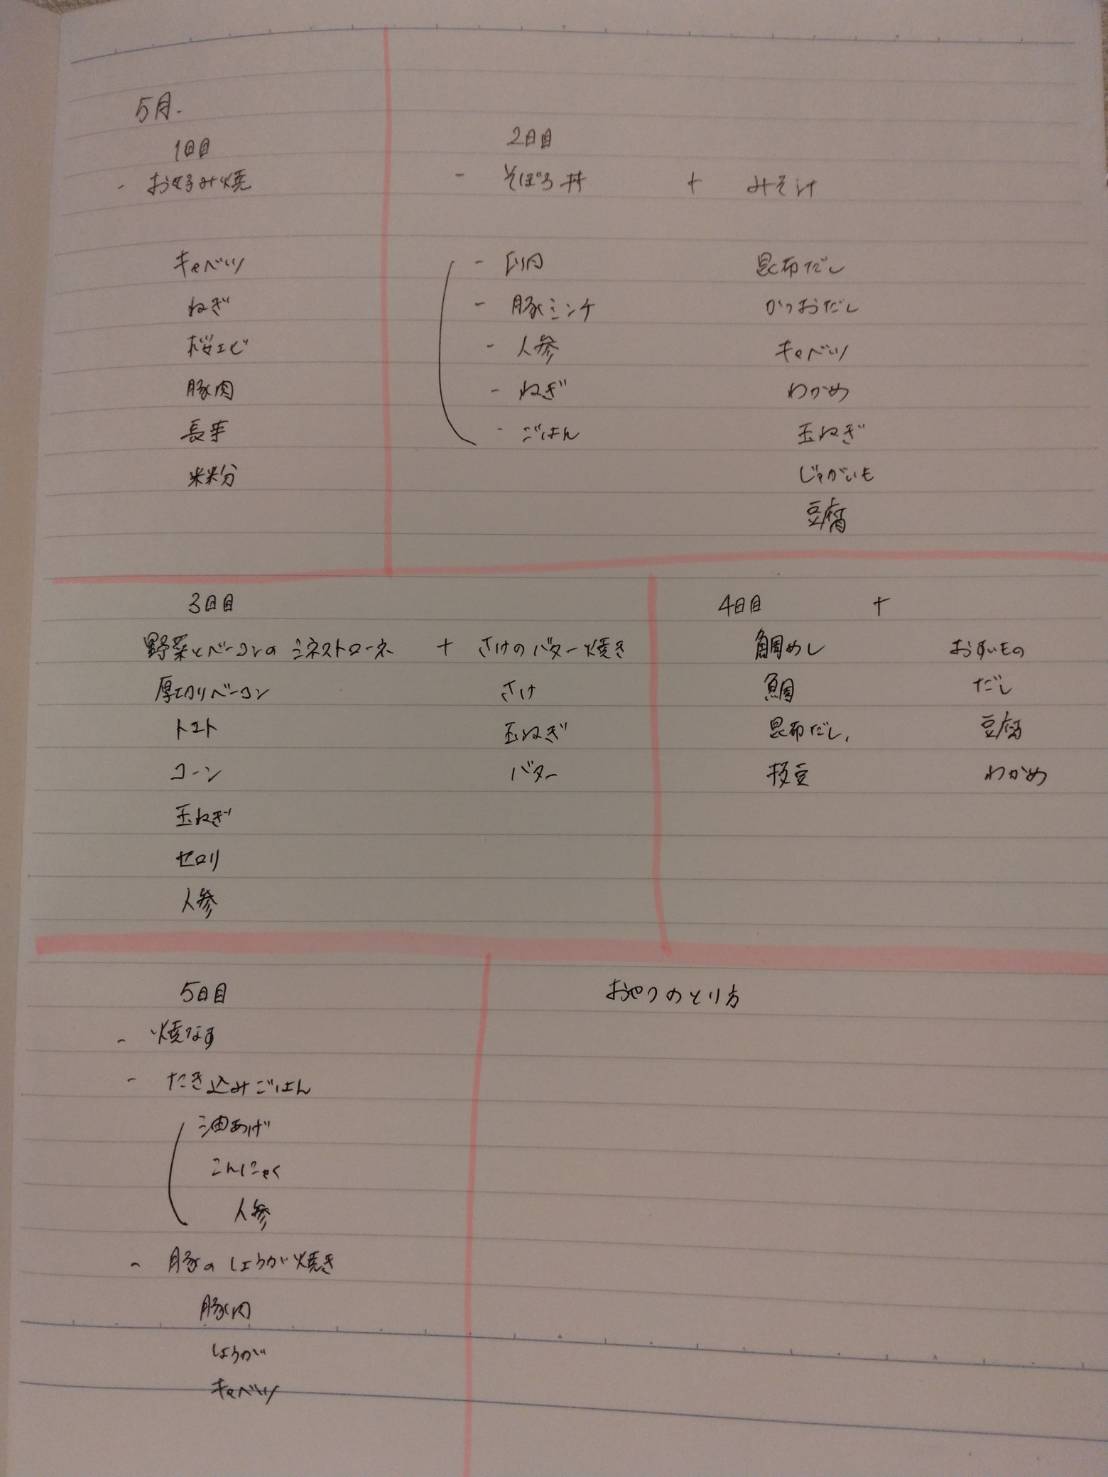 5月.
1日目
- お好み焼
キャベツ
ねぎ
桜エビ
豚肉
長芋
米粉
2日目
- そぼろ丼 + みそ汁
-
- 豚ミンチ
- 人参
- ねぎ
- ごはん
昆布だし
かつおだし
キャベツ
わかめ
玉ねぎ
じゃがいも
豆腐
3日目
野菜とベーコンのミネストローネ + さけのバター焼き
厚切りベーコン
トマト
コーン
玉ねぎ
セロリ
人参
さけ
玉ねぎ
バター
4日目 +
鯛めし
鯛
昆布だし、
枝豆
おすいもの
だし
豆腐
わかめ
5日目
- 焼なす
- たき込みごはん
油あげ
こんにゃく
人参
- 豚のしょうが焼き
豚肉
しょうが
キャベツ
おやつのとり方